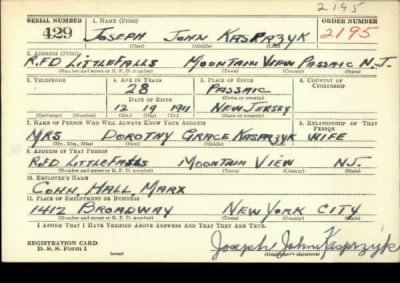 2195
SERIAL NUMBER 1. NAME (Print) ORDER NUMBER
429 JOSEPH JOHN KASPRZYK 2195
(First) (Middle) (Last)
2. ADDRESS (Print)
R.F.D LITTLE FALLS MOUNTAIN VIEW PASSAIC N.J.
(Number and street or R. F. D. number) (Town) (County) (State)
3. TELEPHONE 4. AGE IN YEARS 5. PLACE OF BIRTH 6. COUNTRY OF CITIZENSHIP
28 PASSAIC
DATE OF BIRTH (Town or county)
12 19 1911 NEW JERSEY
(Mo.) (Day) (Yr.) (State or country)
7. NAME OF PERSON WHO WILL ALWAYS KNOW YOUR ADDRESS 8. RELATIONSHIP OF THAT PERSON
MRS DOROTHY GRACE KASPRZYK WIFE
(Mr., Mrs., Miss) (First) (Middle) (Last)
9. ADDRESS OF THAT PERSON
R.F.D LITTLE FALLS MOUNTAIN VIEW N.J.
(Number and street or R. F. D. number) (Town) (County) (State)
10. EMPLOYER'S NAME
COHN, HALL MARX
11. PLACE OF EMPLOYMENT OR BUSINESS
1412 BROADWAY NEW YORK CITY
(Number and street or R. F. D. number) (Town) (County) (State)
I AFFIRM THAT I HAVE VERIFIED ABOVE ANSWERS AND THAT THEY ARE TRUE.
REGISTRATION CARD
D. S. S. Form 1 (over) Joseph John Kasprzyk
(Registrant's signature)